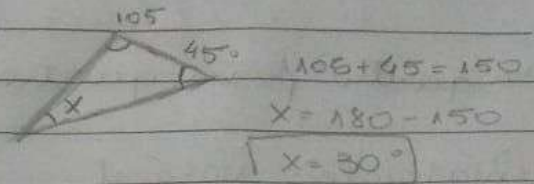 105
45°
x
105 + 45 = 150
x = 180 - 150
x = 30°